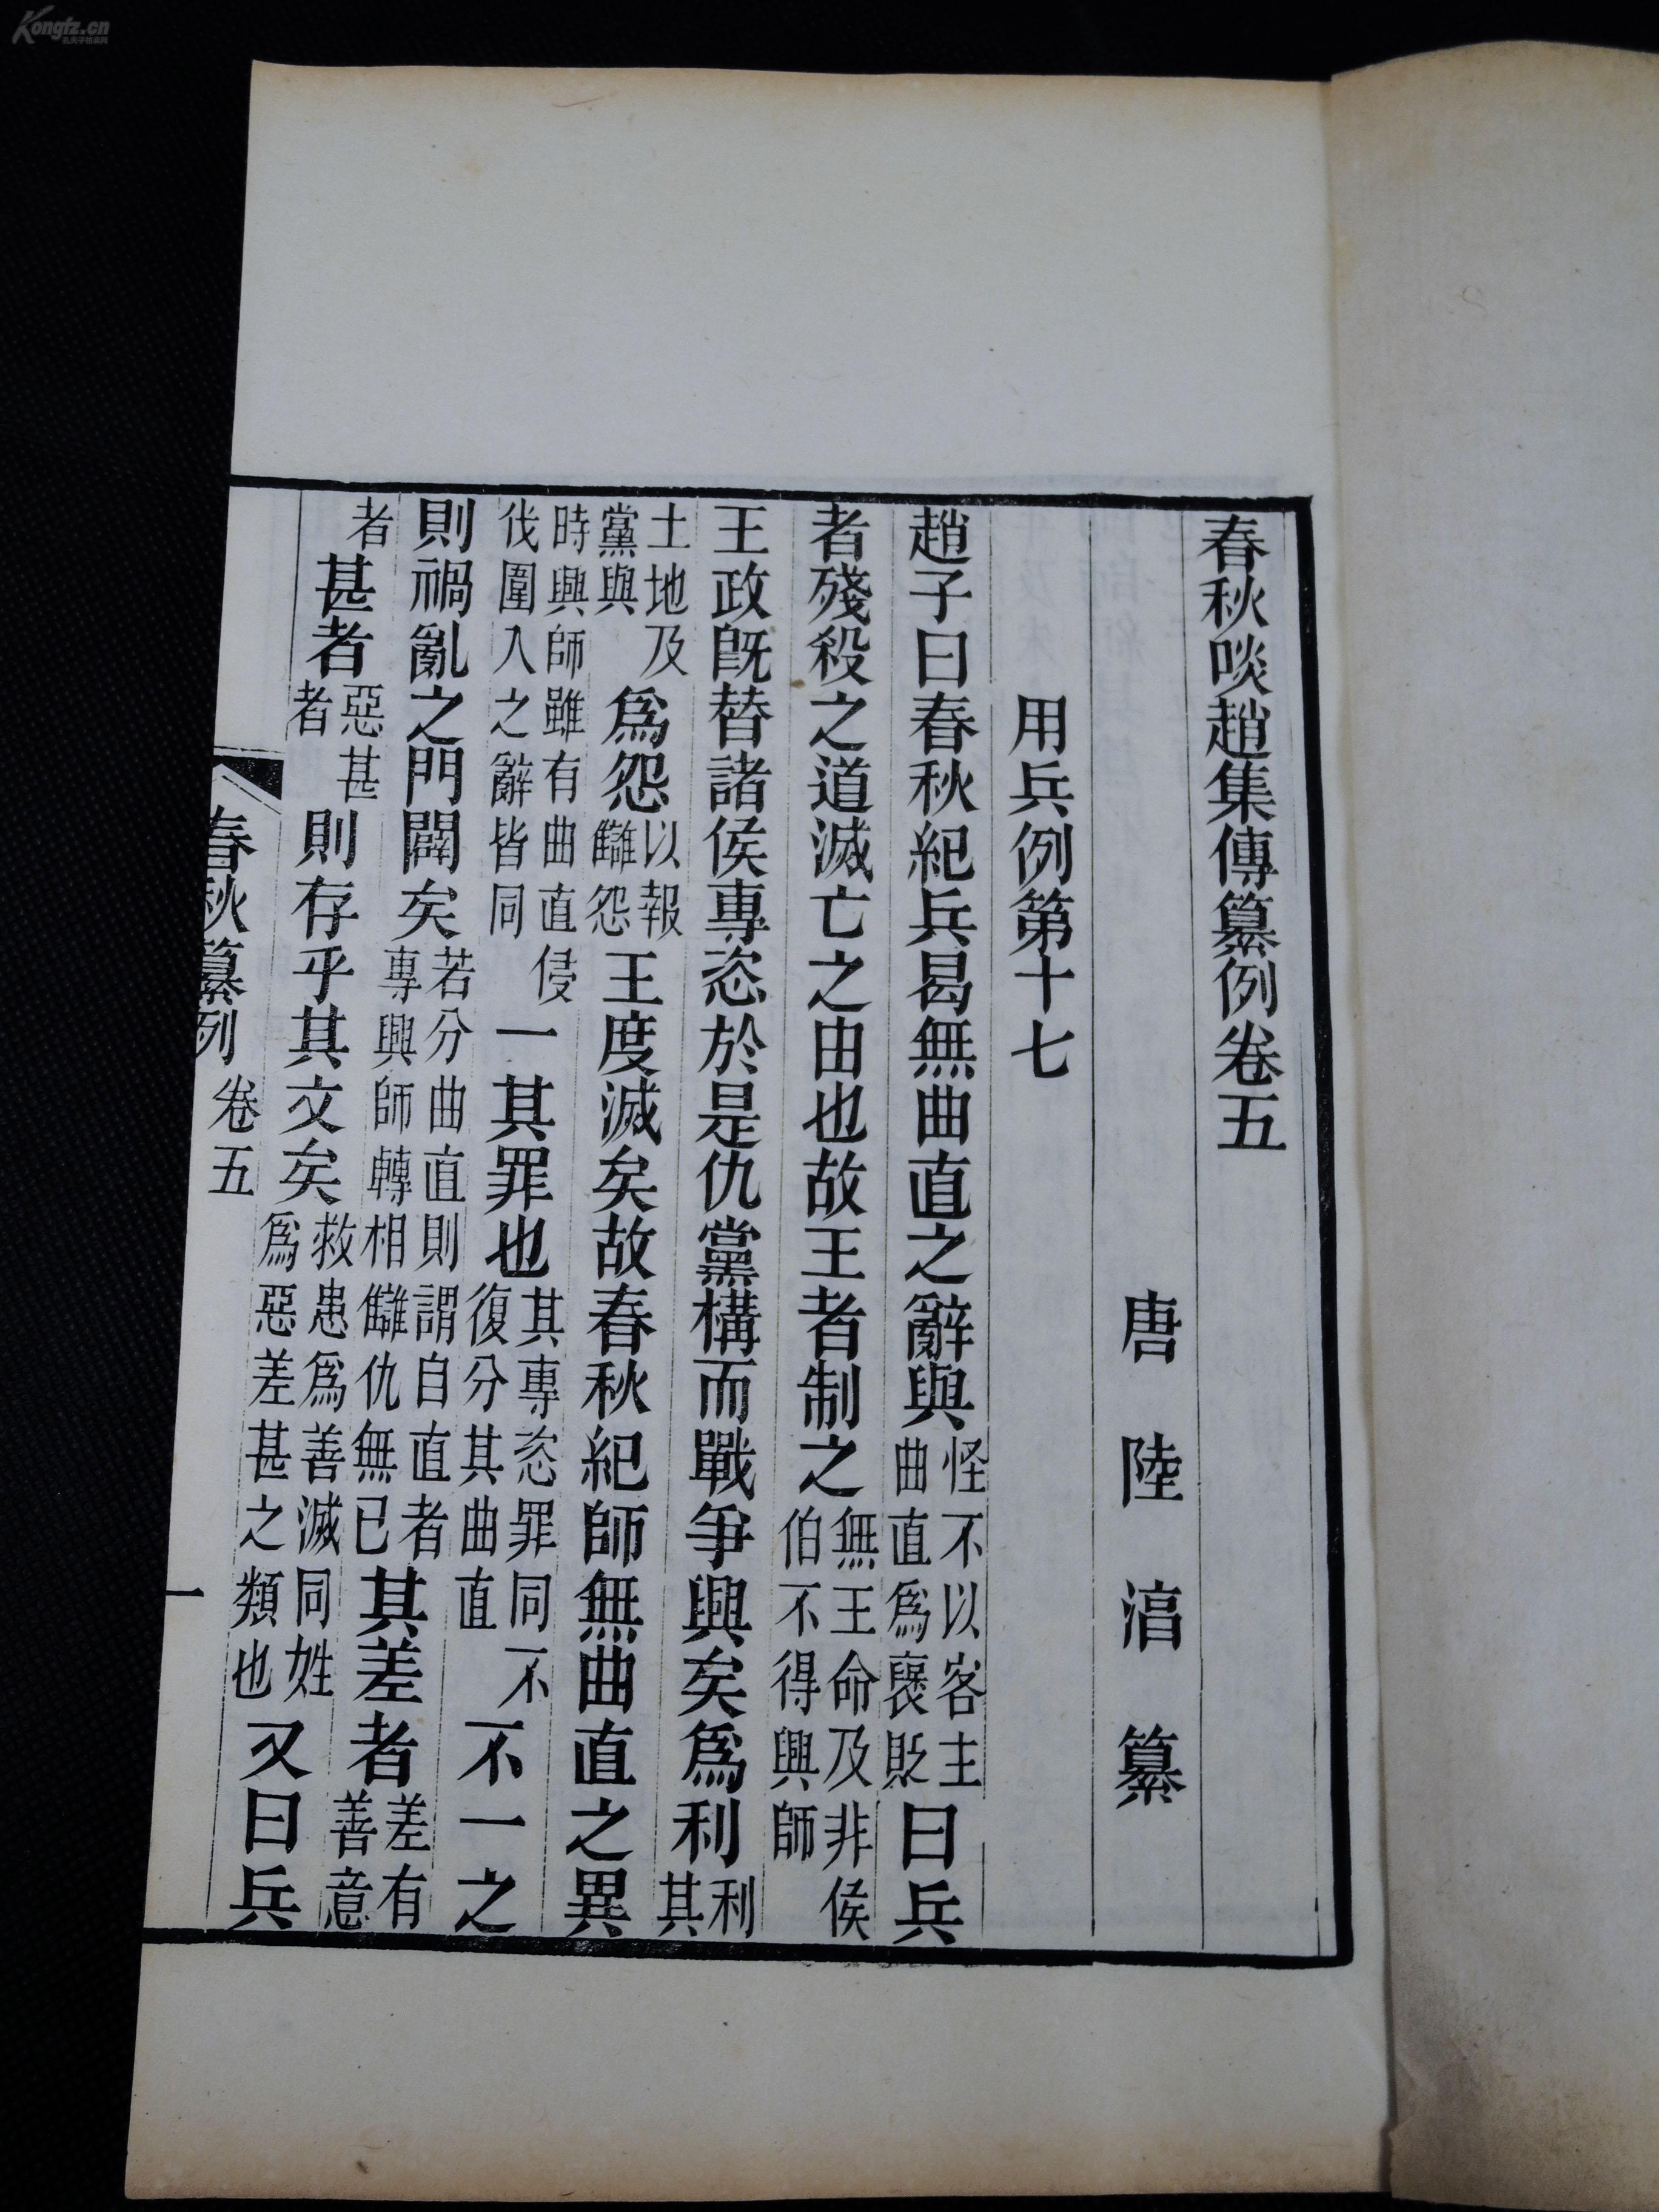 春秋啖趙集傳纂例卷五
唐 陸 淳 纂
用兵例第十七
趙子曰春秋紀兵曷無曲直之辭與怪不以客主曲直為褒貶曰兵
者殘殺之道滅亡之由也故王者制之無王命及非侯伯不得興師
王政既替諸侯專恣於是仇黨構而戰爭興矣爲利利其
土地及黨與爲怨以報讎怨王度滅矣故春秋紀師無曲直之異
時興師雖有曲直侵伐圍入之辭皆同一其罪也其專恣罪同不復分其曲直不一之
則禍亂之門闢矣若分曲直則謂自直者專興師轉相讎仇無已其差者差有善意
者甚者惡甚者則存乎其文矣救患爲善滅同姓爲惡差甚之類也又曰兵
春秋纂例 卷五 一
Kongfz.cn
孔夫子旧书网